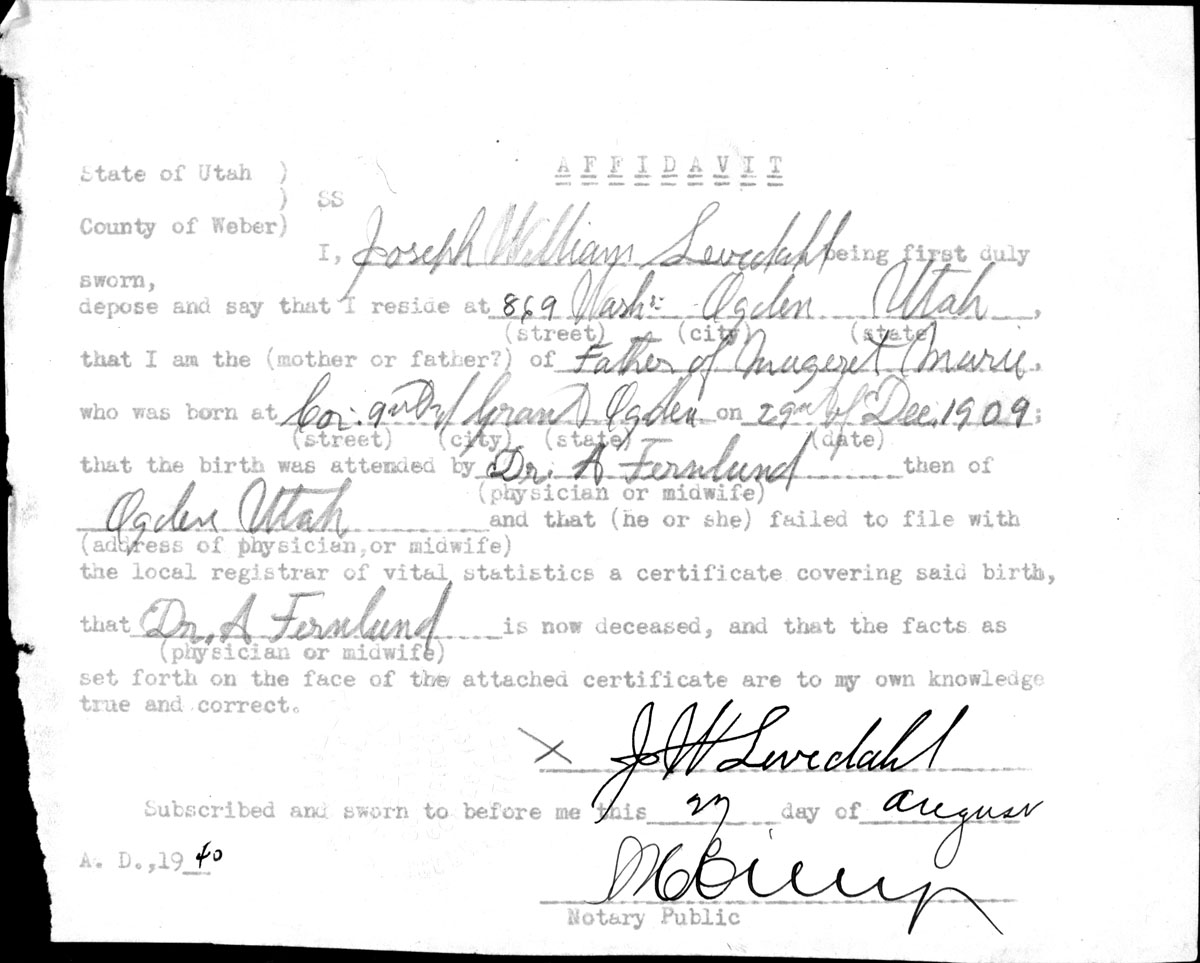 AFFIDAVIT
State of Utah )
) SS
County of Weber)
I, Joseph William Levedahl being first duly
sworn,
depose and say that I reside at 869 Wash: Ogden Utah,
(street) (city) (state)
that I am the (mother or father?) of Father of Mageret Marie,
who was born at Cor: 9th & Grant Ogden on 29th of Dec. 1909;
(street) (city) (state) (date)
that the birth was attended by Dr. A Fernlund then of
(physician or midwife)
Ogden Utah and that (he or she) failed to file with
(address of physician, or midwife)
the local registrar of vital statistics a certificate covering said birth,
that Dr. A Fernlund is now deceased, and that the facts as
(physician or midwife)
set forth on the face of the attached certificate are to my own knowledge
true and correct.
X J W Levedahl
Subscribed and sworn to before me this day of August
A. D., 19 40
Notary Public